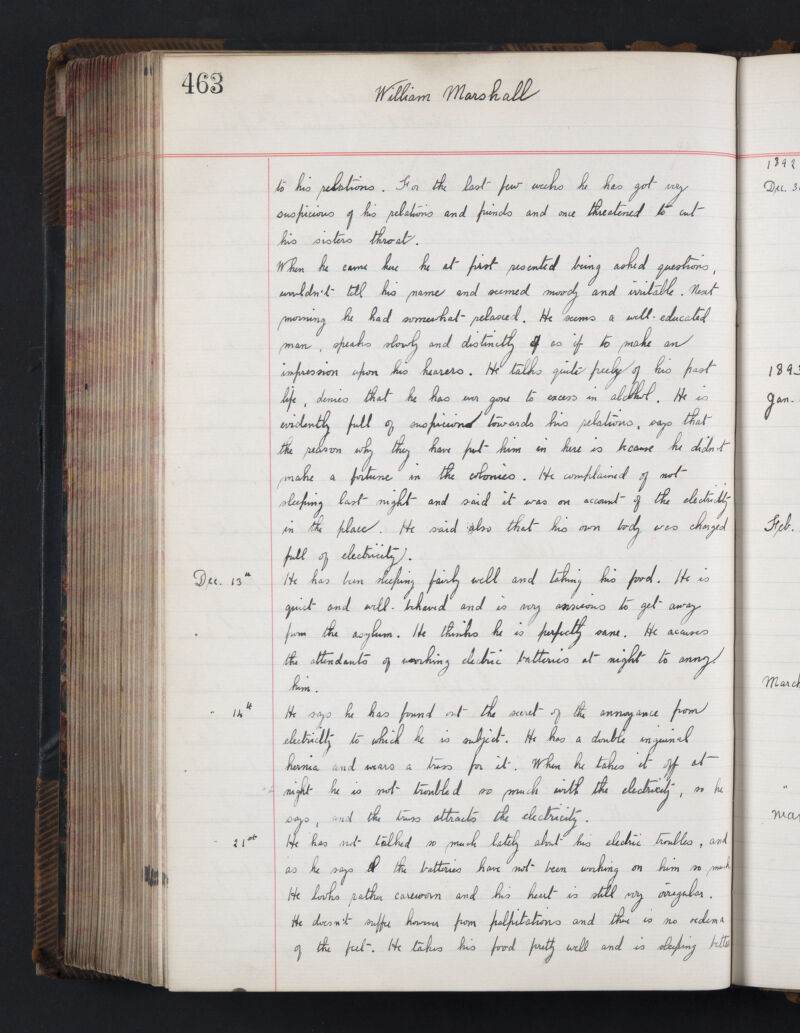 463
William Marshall
to his relations. For the last few weeks he has got very
suspicious of his relations and friends and once threatened to cut
his sisters throat.
When he came here he at first resented being asked questions,
wouldn't tell his name and seemed moody and irritable. Next
morning he had somewhat relaxed. He seems a well-educated
man, speaks slowly and distinctly as if to make an
impression upon his hearers. He talks quite freely of his past
life, denies that he has ever gone to excess in alcohol. He is
evidently full of suspicions towards his relations, says that
the reason why they have put him in here is because he didn't
make a fortune in the colonies. He complained of not
sleeping last night and said it was on account of the electricity
in the place. He said also that his own body was charged
full of electricity).
Dec. 13th He has been sleeping fairly well and taking his food. He is
quiet and well-behaved and is very anxious to get away
from the asylum. He thinks he is perfectly sane. He accuses
the attendants of working electric batteries at night to annoy
him.
" 14th He says he has found out the secret of the annoyance from
electricity to which he is subject. He has a double inguinal
hernia and wears a truss for it. When he takes it off at
night he is not troubled so much with the electricity, so he
says, and the truss attracts the electricity.
" 21st He has not talked so much lately about his electric troubles, and
as he says the batteries have not been working on him so much
He looks rather careworn and his heart is still very irregular.
He doesn't suffer however from palpitations and there is no oedema
of the feet. He takes his food pretty well and is sleeping better
1892
Dec. 3
189
Jan.
Feb.
March
"
Mar